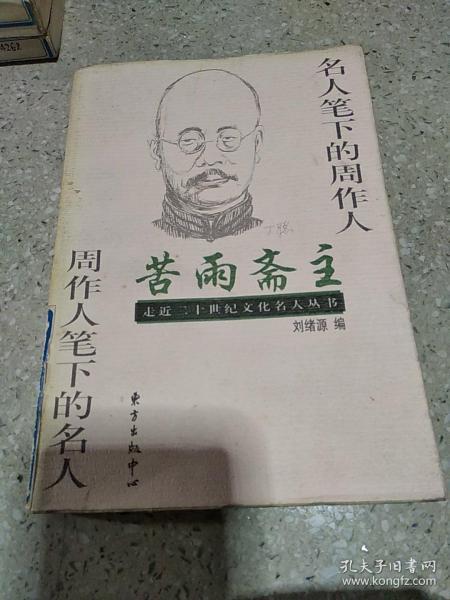 名人笔下的周作人
苦雨斋主
走近二十世纪文化名人丛书
刘绪源 编
周作人笔下的名人
东方出版中心
4262
孔夫子旧书网
www.kongfz.com